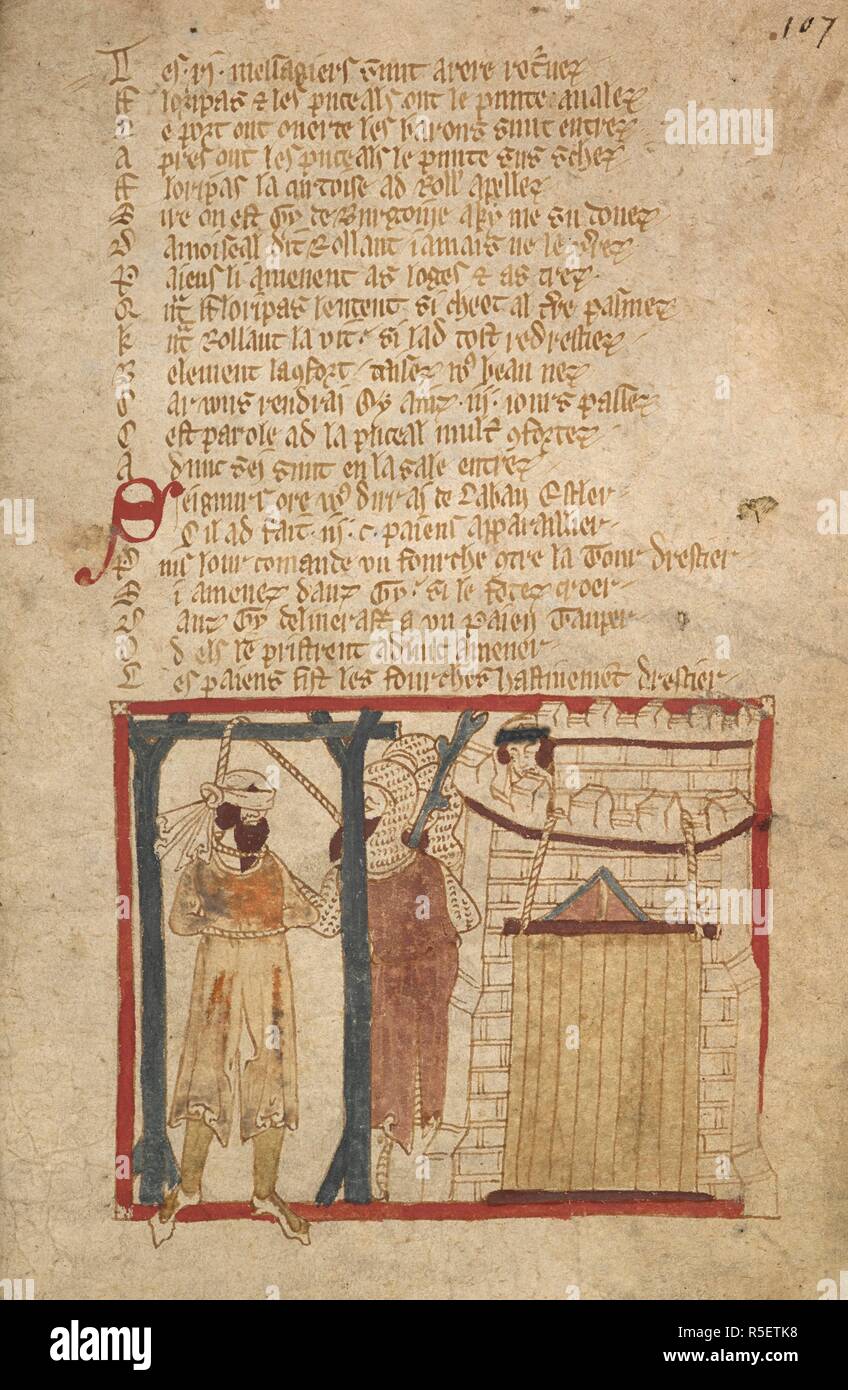 107
Les .xi. messagiers sunt arere retornez
Floripas & les pucels ont le punte avalez
Le port ont overte les barons sunt entrez
Apres ont les pucels le punte sus
Floripas la curtoise ad Roll' apellez
Sire ou est Gy de Burgoine
Damoiseal dit Rollant jamais ne le
Paiens li amenent as loges & as trez
Floripas lentent si cheot al terre pasmez
Rollant la vit si lad tost redrescier
Belement la confort
Car vous rendrai Gy ainz .iii. jours passez
Cest parole ad la pucel mult confortez
Adunc sei sunt en la sale entrez
Seignurs ore de Laban
Cil ad fait .iii. c. paiens apparaillier
Puis lour comande un fourche contre la Tour drescier
Si amenez danz Gy si le
Danz Gy a un paien
Od els le pristrent amener
Les paiens fist les fourches hastivement drescier
alamy
Image ID: R5ETK8
www.alamy.com